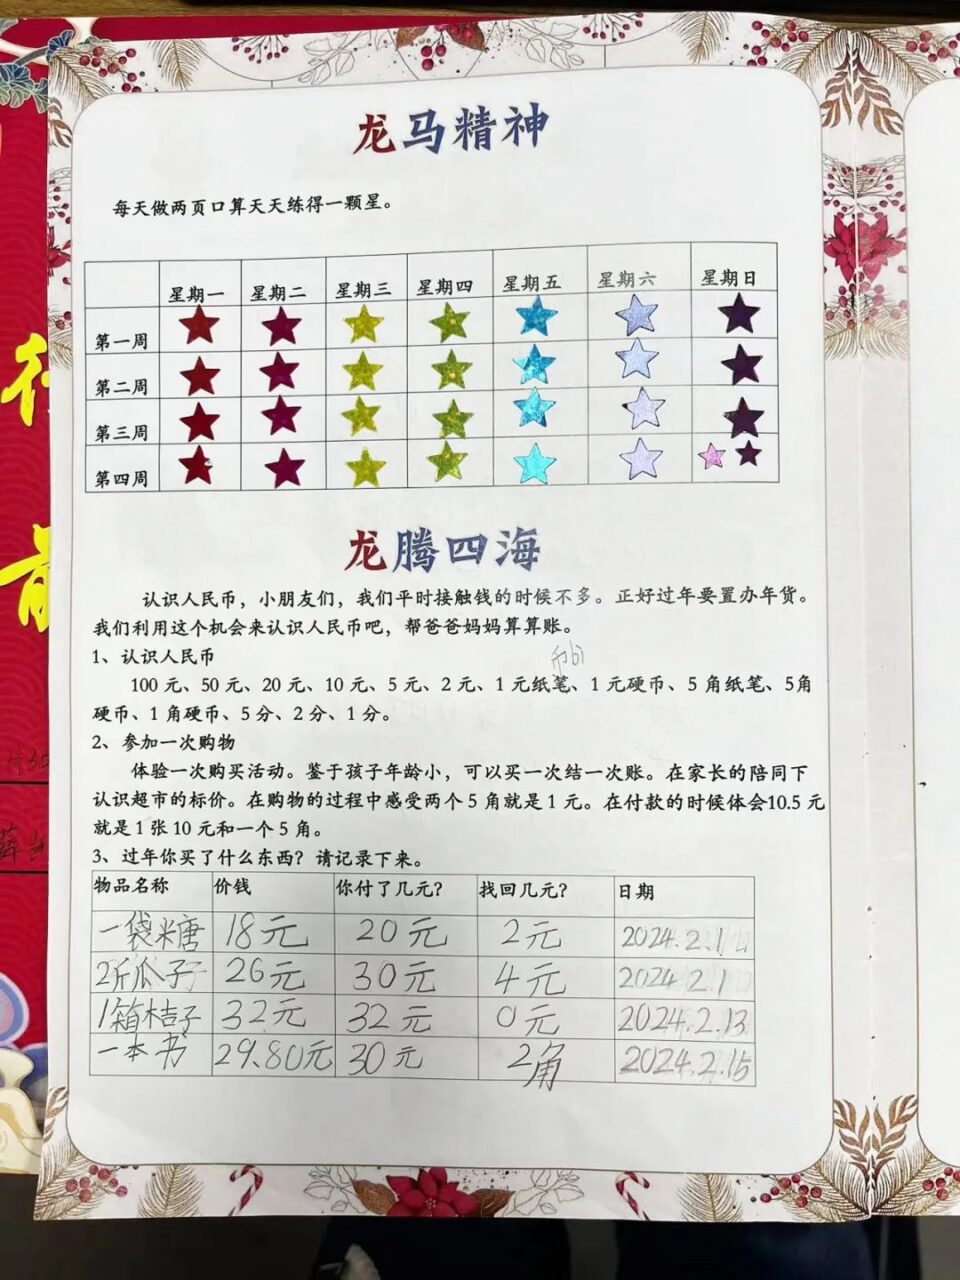 龙马精神
每天做两页口算天天练得一颗星。
星期一 星期二 星期三 星期四 星期五 星期六 星期日
第一周
第二周
第三周
第四周
龙腾四海
认识人民币，小朋友们，我们平时接触钱的时候不多。正好过年要置办年货。
我们利用这个机会来认识人民币吧，帮爸爸妈妈算算账。
1、认识人民币
币bì
100 元、50 元、20 元、10 元、5 元、2 元、1 元纸笔、1 元硬币、5 角纸笔、5角
硬币、1 角硬币、5 分、2 分、1 分。
2、参加一次购物
体验一次购买活动。鉴于孩子年龄小，可以买一次结一次账。在家长的陪同下
认识超市的标价。在购物的过程中感受两个 5 角就是 1 元。在付款的时候体会10.5 元
就是 1 张 10 元和一个 5 角。
3、过年你买了什么东西？请记录下来。
物品名称 价钱 你付了几元？ 找回几元？ 日期
一袋糖 18元 20元 2元 2024.2.1
2斤瓜子 26元 30元 4元 2024.2.1
1箱桔子 32元 32元 0元 2024.2.13
一本书 29.80元 30元 2角 2024.2.15